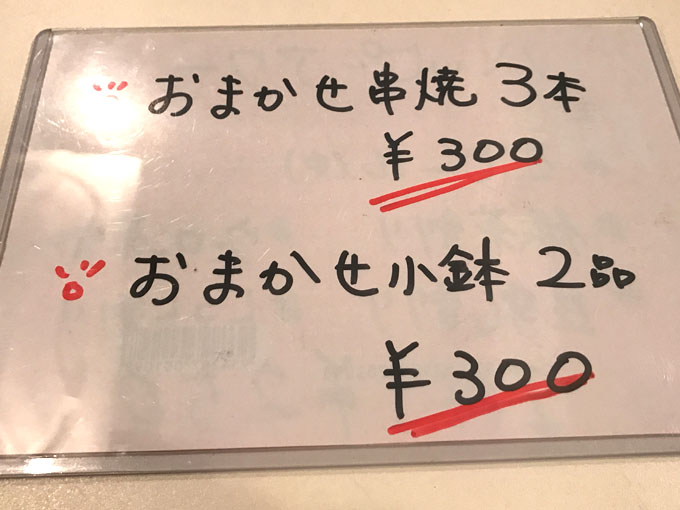 おまかせ串焼 3本
¥300
おまかせ小鉢 2品
¥300